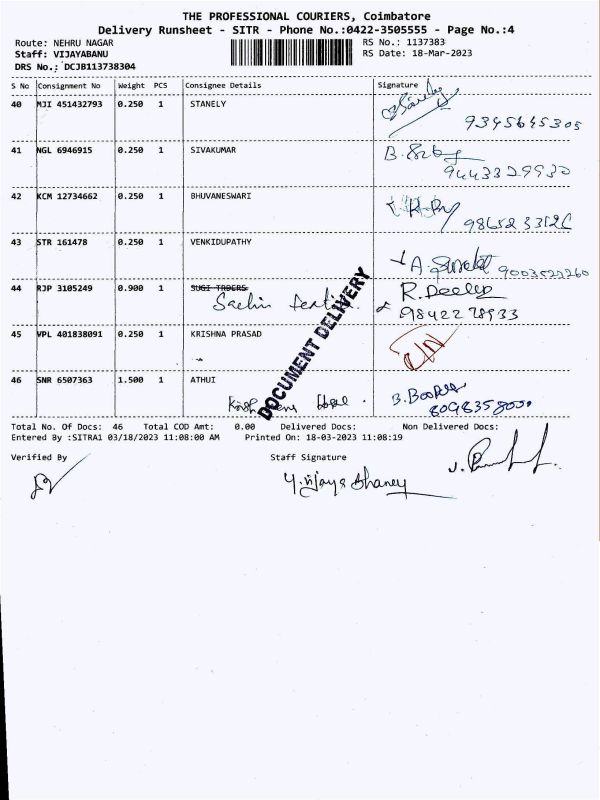 THE PROFESSIONAL COURIERS, Coimbatore
Delivery Runsheet - SITR - Phone No.:0422-3505555 - Page No.:4
Route: NEHRU NAGAR
Staff: VIJAYABANU
DRS No.: DCJB113738304
RS No.: 1137383
RS Date: 18-Mar-2023
S No Consignment No Weight PCS Consignee Details Signature
40 MJI 451432793 0.250 1 STANELY
9345645305
41 NGL 6946915 0.250 1 SIVAKUMAR
9443329930
42 KCM 12734662 0.250 1 BHUVANESWARI
43 STR 161478 0.250 1 VENKIDUPATHY
44 RJP 3105249 0.900 1 SUGI TRDERS
R. Deelep
9842278933
45 VPL 401838091 0.250 1 KRISHNA PRASAD
46 SNR 6507363 1.500 1 ATHUI
DOCUMENT DELIVERY
Total No. Of Docs: 46 Total COD Amt: 0.00 Delivered Docs: Non Delivered Docs:
Entered By :SITRA1 03/18/2023 11:08:00 AM Printed On: 18-03-2023 11:08:19
Verified By Staff Signature